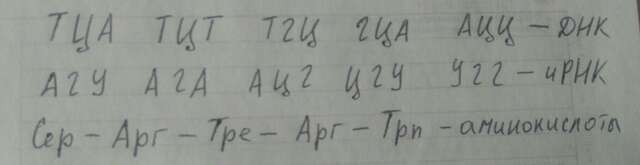 ТЦА ТЦТ ТГЦ ГЦА АЦЦ – ДНК
АГУ АГА АЦГ ЦГУ УГГ – иРНК
Сер – Арг – Тре – Арг – Трп – аминокислоты